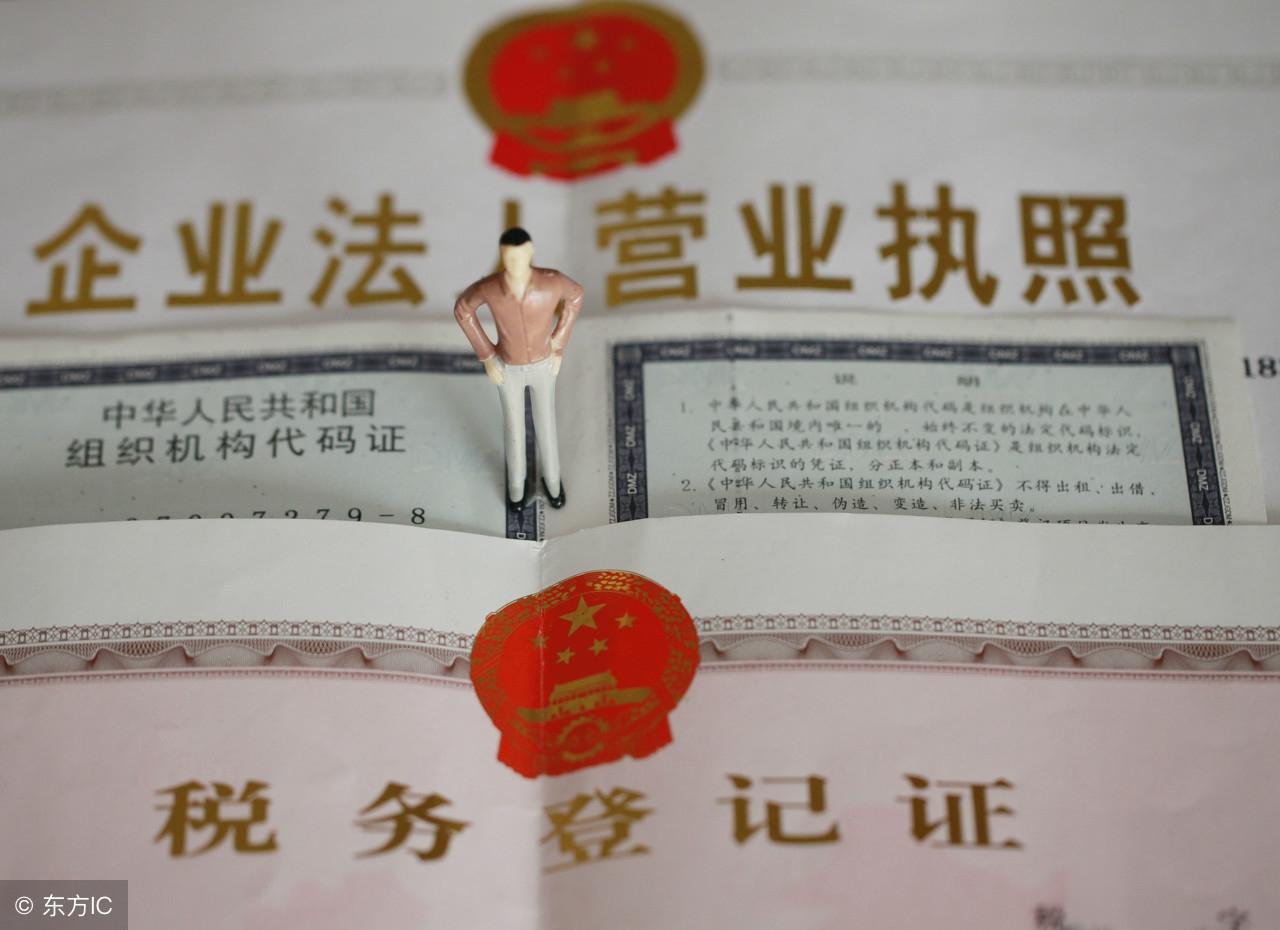 企业法人营业执照
中华人民共和国
组织机构代码证
7279-8
说 明
1. 中华人民共和国组织机构代码是组织机构在中华人
民共和国境内唯一的、始终不变的法定代码标识,
《中华人民共和国组织机构代码证》是组织机构法定
代码标识的凭证,分正本和副本。
2.《中华人民共和国组织机构代码证》不得出租、出借、
冒用、转让、伪造、变造、非法买卖。
18
税务登记证
字
© 东方IC